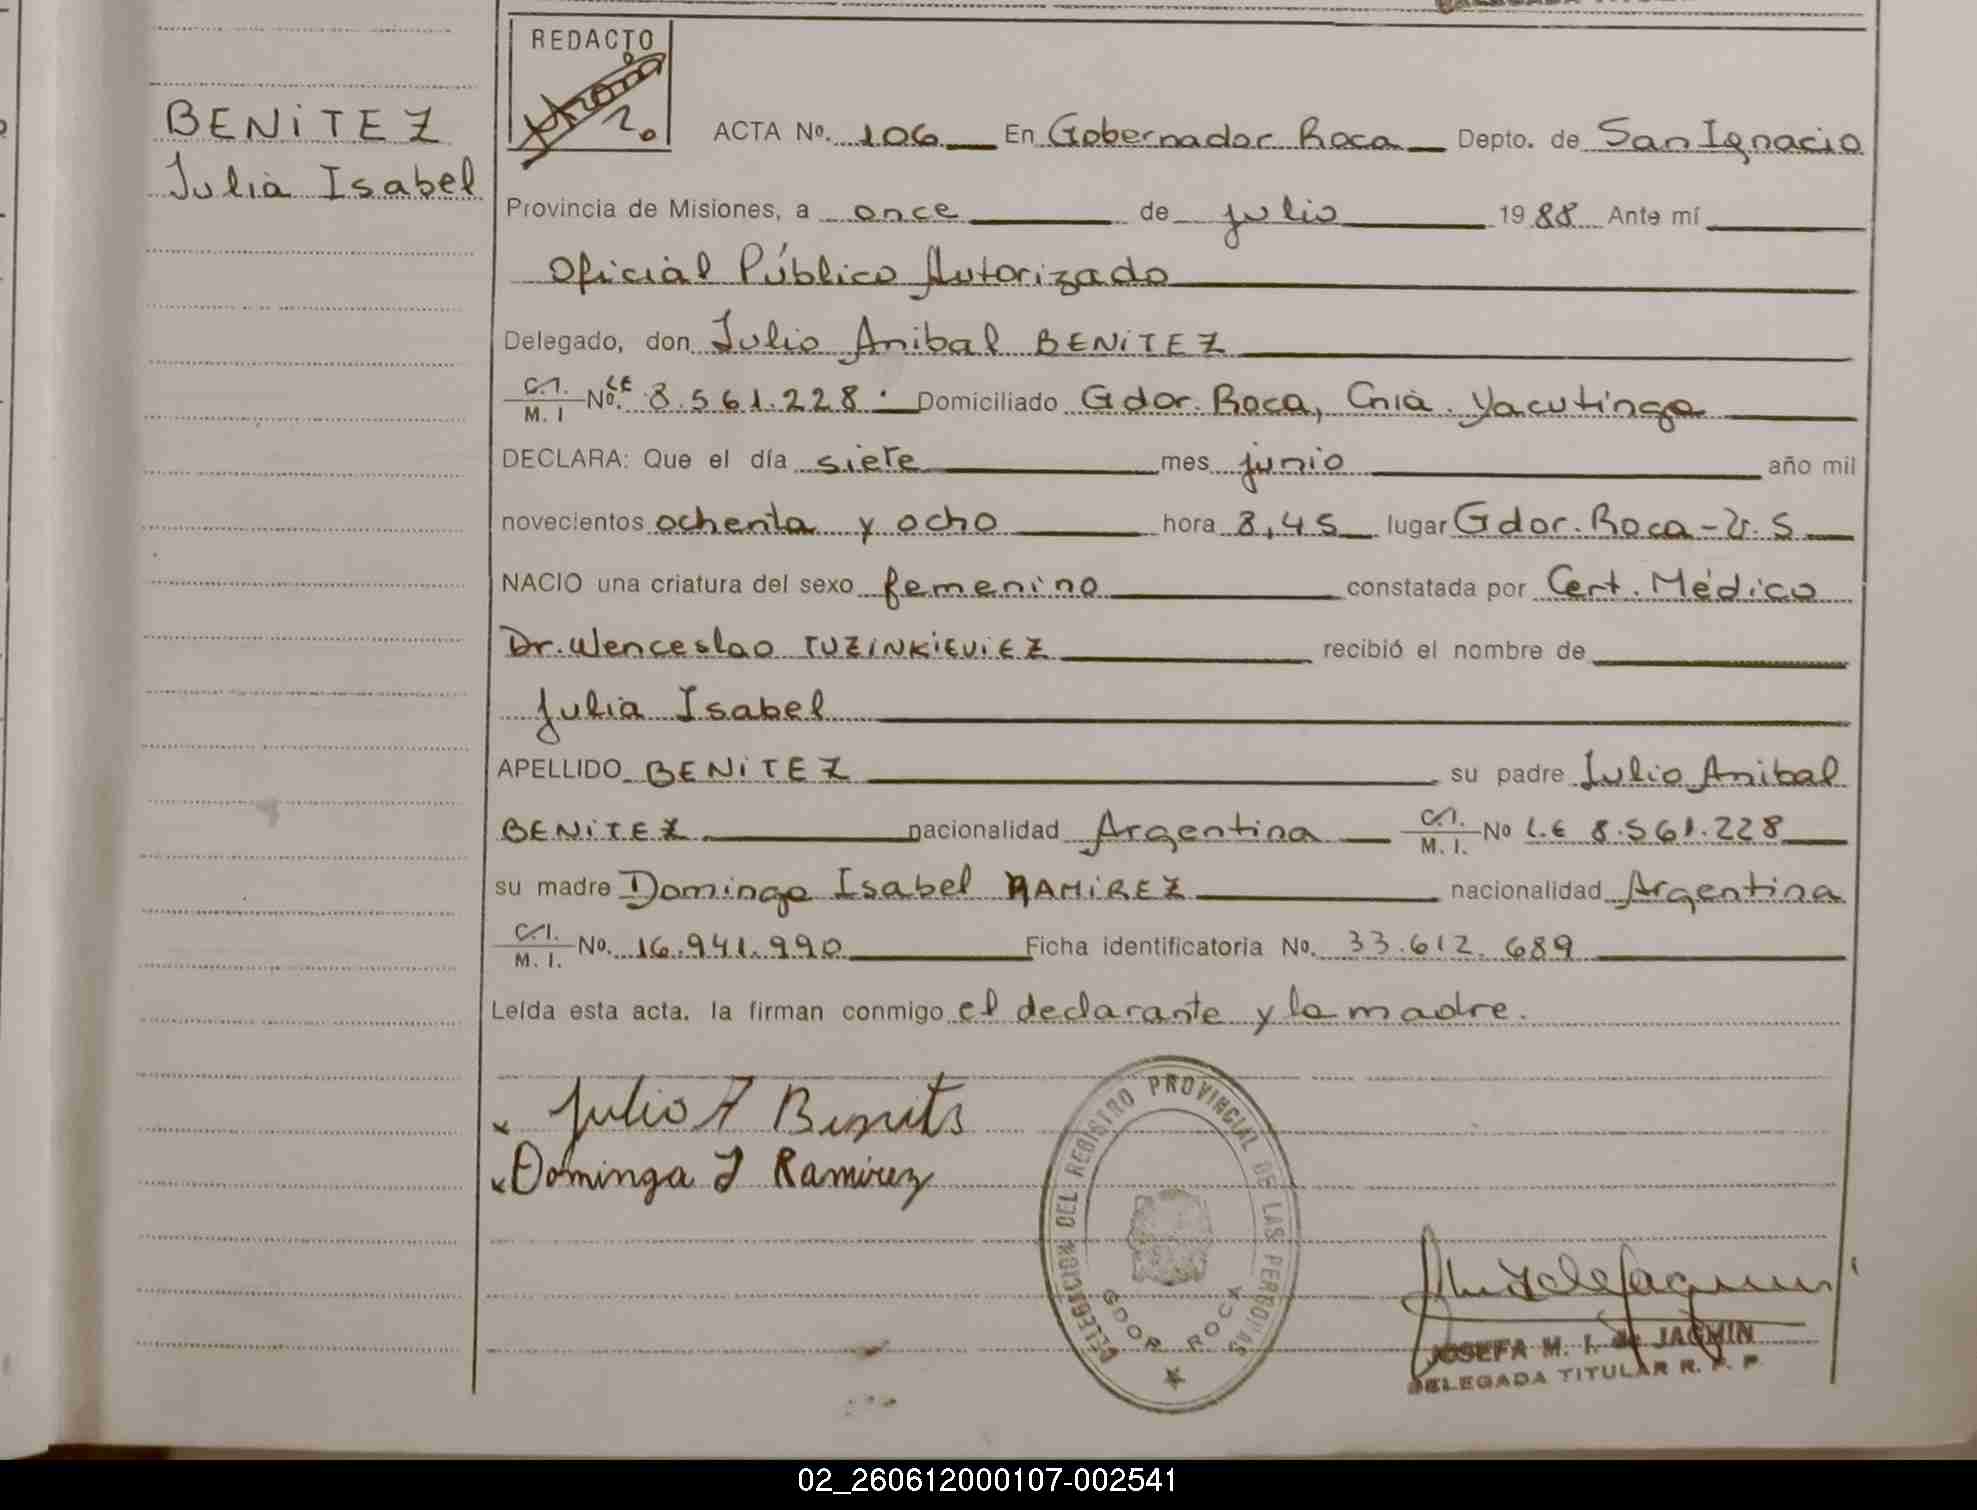 BENiTEZ
Julia Isabel
REDACTO
ACTA Nº. 106 En Gobernador Roca Depto. de San Ignacio
Provincia de Misiones, a once de julio 1988 Ante mí
Oficial Público Autorizado
Delegado, don Julio Anibal BENiTEZ
C.I. M. I Nº. LE 8.561.228. Domiciliado Gdor. Roca, Cnia. Yacutinga
DECLARA: Que el día siete mes junio año mil
novecientos ochenta y ocho hora 8,45 lugar Gdor. Roca - U. S
NACIO una criatura del sexo femenino constatada por Cert. Médico
Dr. Wenceslao TUZiNKiEViEZ recibió el nombre de
Julia Isabel
APELLIDO BENiTEZ su padre Julio Anibal
BENiTEZ nacionalidad Argentina C.I. M. I. Nº L.E 8.561.228
su madre Dominga Isabel RAMiREZ nacionalidad Argentina
C.I. M. I. Nº. 16.941.990 Ficha identificatoria Nº. 33.612.689
Leída esta acta, la firman conmigo el declarante y la madre.
x Julio A Benites
x Dominga I Ramirez
DELEGACION DEL REGISTRO PROVINCIAL DE LAS PERSONAS
GDOR ROCA
JOSEFA M. I. de JACMIN
DELEGADA TITULAR R. P. P
02_260612000107-002541